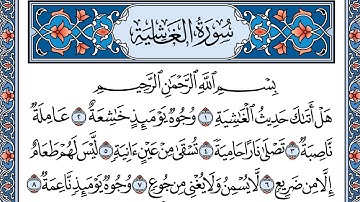 سُورَةُ الْغَاشِيَةِ
بِسْمِ اللَّهِ الرَّحْمَٰنِ الرَّحِيمِ
هَلْ أَتَىٰكَ حَدِيثُ الْغَٰشِيَةِ ١ وُجُوهٌ يَوْمَئِذٍ خَٰشِعَةٌ ٢ عَامِلَةٌ
نَّاصِبَةٌ ٣ تَصْلَىٰ نَارًا حَامِيَةً ٤ تُسْقَىٰ مِنْ عَيْنٍ ءَانِيَةٍ ٥ لَّيْسَ لَهُمْ طَعَامٌ
إِلَّا مِن ضَرِيعٍ ٦ لَّا يُسْمِنُ وَلَا يُغْنِي مِن جُوعٍ ٧ وُجُوهٌ يَوْمَئِذٍ نَّاعِمَةٌ ٨